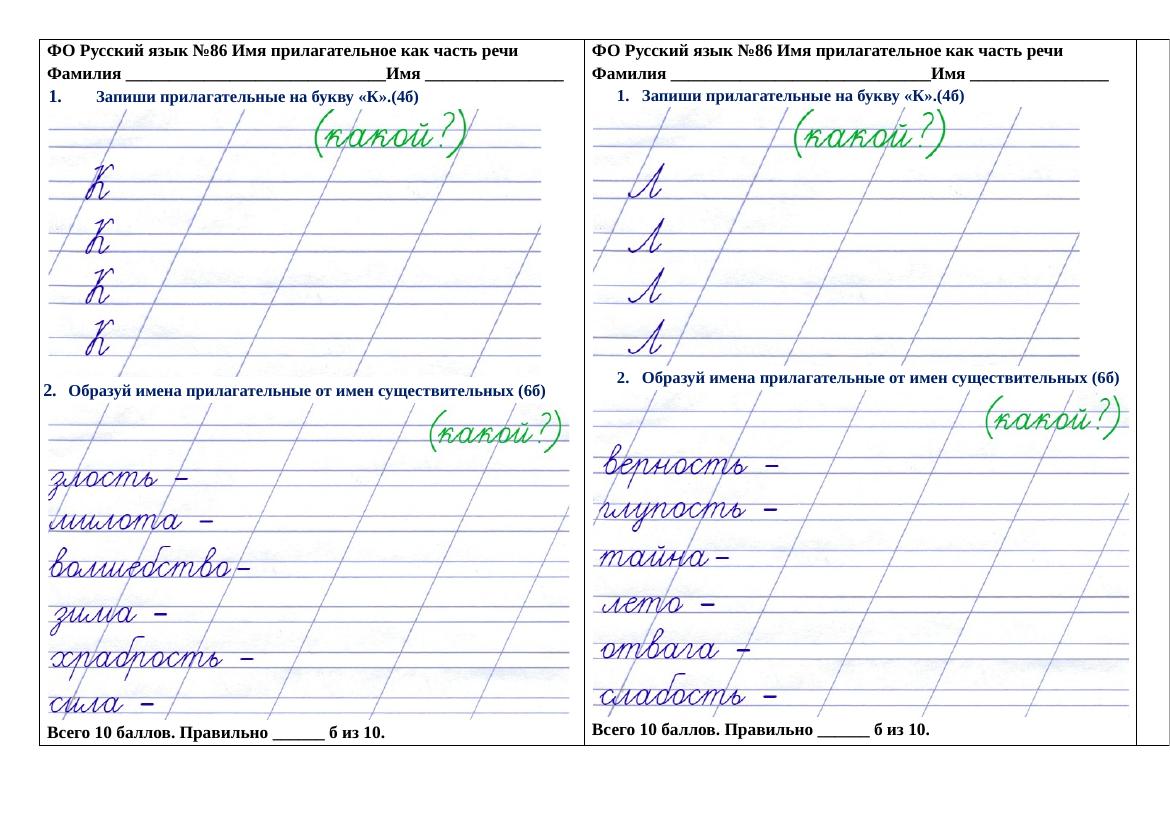 ФО Русский язык №86 Имя прилагательное как часть речи
Фамилия ______________________________Имя ________________
1. Запиши прилагательные на букву «К».(4б)
(какой?)
К
К
К
К
2. Образуй имена прилагательные от имен существительных (6б)
(какой?)
злость –
милота –
волшебство –
зима –
храбрость –
сила –
Всего 10 баллов. Правильно ______ б из 10.
ФО Русский язык №86 Имя прилагательное как часть речи
Фамилия ______________________________Имя ________________
1. Запиши прилагательные на букву «К».(4б)
(какой?)
Л
Л
Л
Л
2. Образуй имена прилагательные от имен существительных (6б)
(какой?)
верность –
глупость –
тайна –
лето –
отвага –
слабость –
Всего 10 баллов. Правильно ______ б из 10.